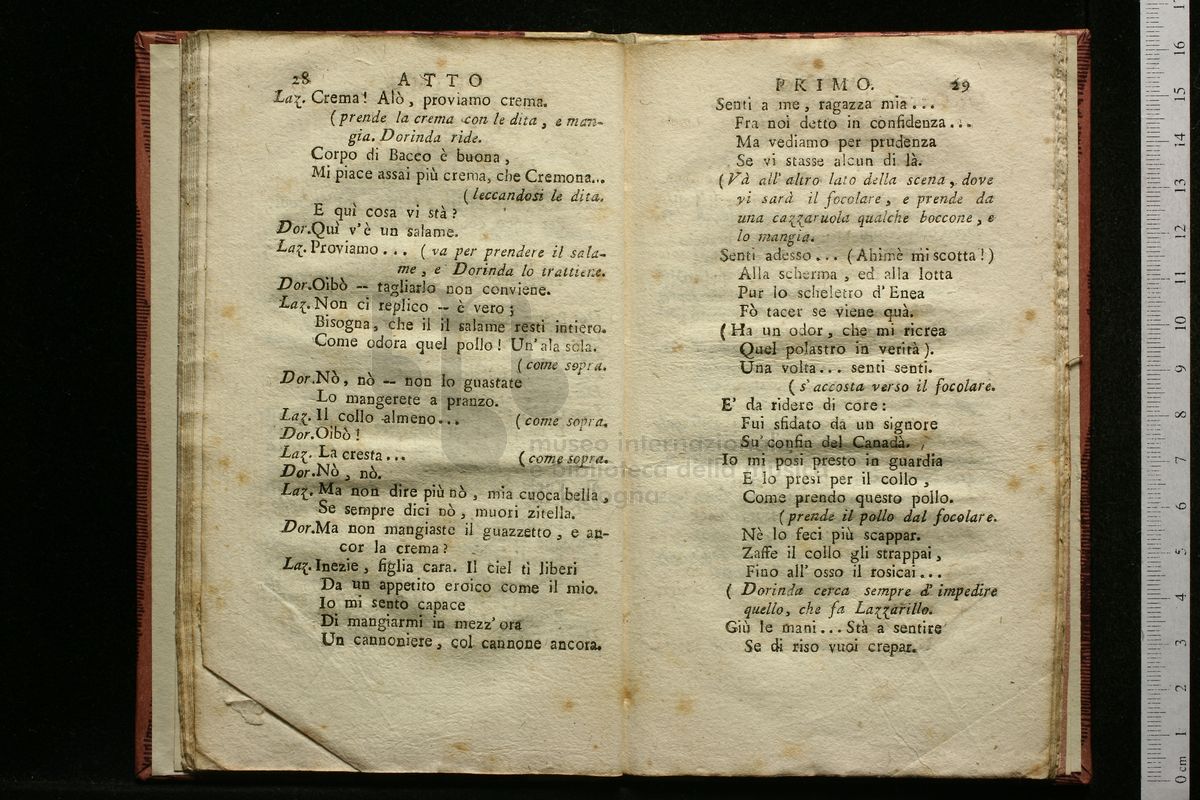 28 ATTO
Laz. Crema! Alò, proviamo crema.
(prende la crema con le dita, e man-
gia. Dorinda ride.
Corpo di Bacco è buona,
Mi piace assai più crema, che Cremona...
(leccandosi le dita.
E quì cosa vi stà?
Dor. Quì v'è un salame.
Laz. Proviamo... (va per prendere il sala-
me, e Dorinda lo trattiene.
Dor. Oibò -- tagliarlo non conviene.
Laz. Non ci replico -- è vero;
Bisogna, che il il salame resti intiero.
Come odora quel pollo! Un'ala sola.
(come sopra.
Dor. Nò, nò -- non lo guastate
Lo mangerete a pranzo.
Laz. Il collo almeno... (come sopra.
Dor. Oibò!
Laz. La cresta... (come sopra.
Dor. Nò, nò.
Laz. Ma non dire più nò, mia cuoca bella,
Se sempre dici nò, muori zitella.
Dor. Ma non mangiaste il guazzetto, e an-
cor la crema?
Laz. Inezie, figlia cara. Il ciel ti liberi
Da un appetito eroico come il mio.
Io mi sento capace
Di mangiarmi in mezz'ora
Un cannoniere, col cannone ancora.
PRIMO. 29
Senti a me, ragazza mia...
Fra noi detto in confidenza...
Ma vediamo per prudenza
Se vi stasse alcun di là.
(Và all'altro lato della scena, dove
vi sarà il focolare, e prende da
una cazzaruola qualche boccone, e
lo mangia.
Senti adesso... (Ahimè mi scotta!)
Alla scherma, ed alla lotta
Pur lo scheletro d'Enea
Fò tacer se viene quà.
(Ha un odor, che mi ricrea
Quel polastro in verità).
Una volta... senti senti.
(s'accosta verso il focolare.
E' da ridere di core:
Fui sfidato da un signore
Su' confin del Canadà.
Io mi posi presto in guardia
E lo presi per il collo,
Come prendo questo pollo.
(prende il pollo dal focolare.
Nè lo feci più scappar.
Zaffe il collo gli strappai,
Fino all'osso il rosicai...
( Dorinda cerca sempre d'impedire
quello, che fa Lazzarillo.
Giù le mani... Stà a sentire
Se di riso vuoi crepar.